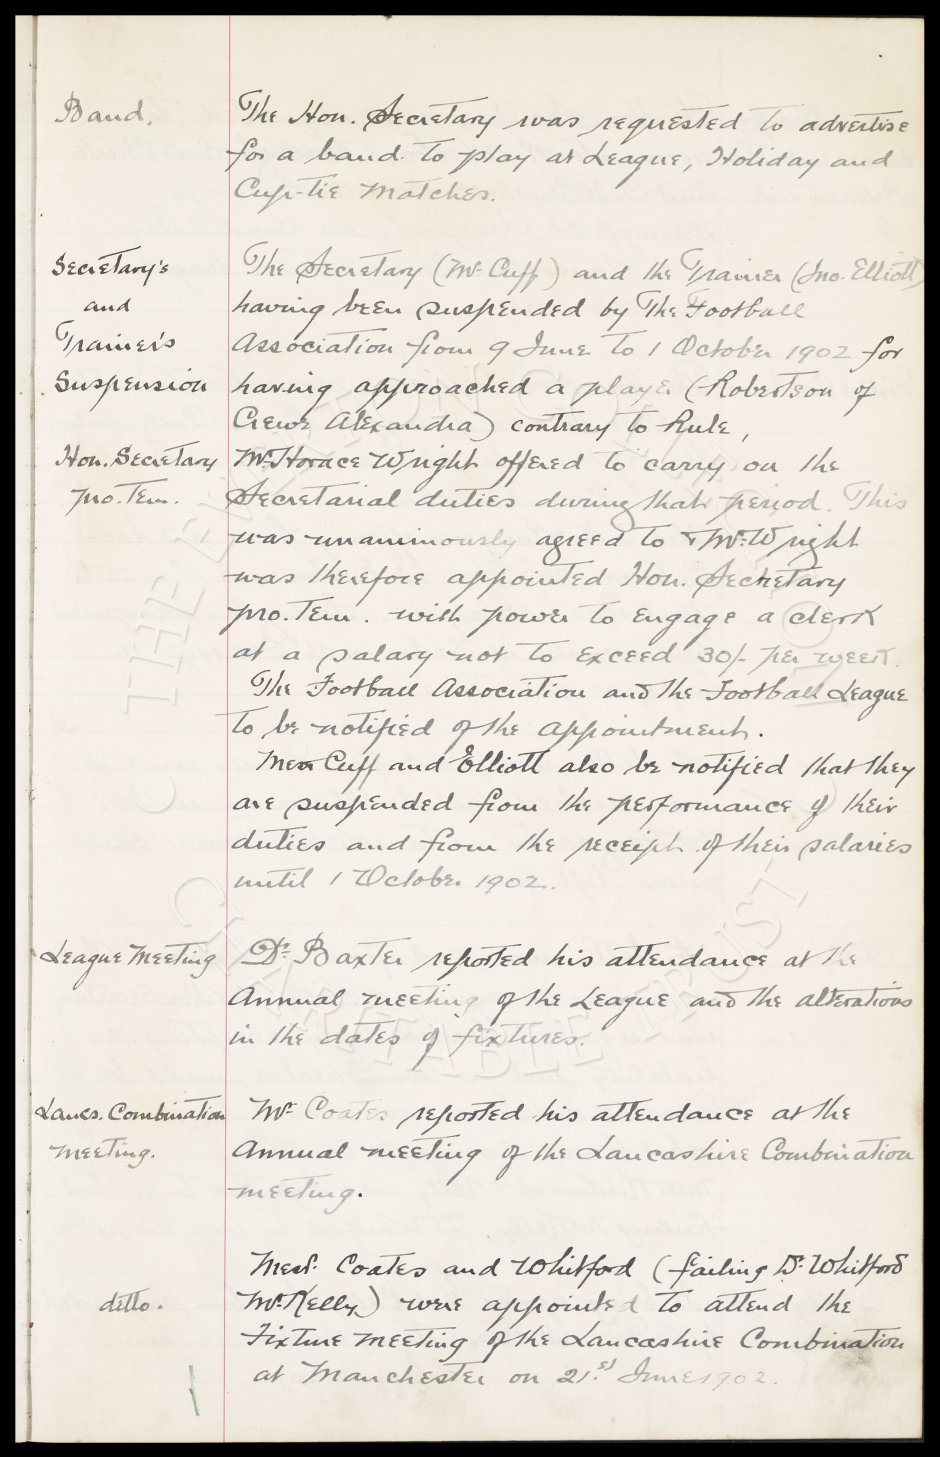 Band.
The Hon. Secretary was requested to advertise
for a band to play at League, Holiday and
Cup-tie Matches.
Secretary's
and
Trainer's
Suspension
The Secretary (Mr Cuff) and the Trainer (Jno. Elliott)
having been suspended by The Football
Association from 9 June to 1 October 1902 for
having approached a player (Robertson of
Crewe Alexandra) contrary to Rule,
Hon. Secretary
pro. Tem.
Mr Horace Wright offered to carry on the
Secretarial duties during that period. This
was unanimously agreed to & Mr. Wright
was therefore appointed Hon. Secretary
pro. Tem. with power to engage a clerk
at a salary not to exceed 30/- per week.
The Football Association and the Football League
to be notified of the appointment.
Messrs Cuff and Elliott also be notified that they
are suspended from the performance of their
duties and from the receipt of their salaries
until 1 October 1902.
League Meeting
Dr. Baxter reported his attendance at the
Annual meeting of the League and the alterations
in the dates of fixtures.
Lancs. Combination
meeting.
Mr Coates reported his attendance at the
Annual meeting of the Lancashire Combination
meeting.
ditto.
Messrs. Coates and Whitford (failing Dr. Whitford
Mr. Kelly) were appointed to attend the
Fixture meeting of the Lancashire Combination
at Manchester on 21st June 1902.
THE EVERTON COLLECTION
CHARITABLE TRUST
©